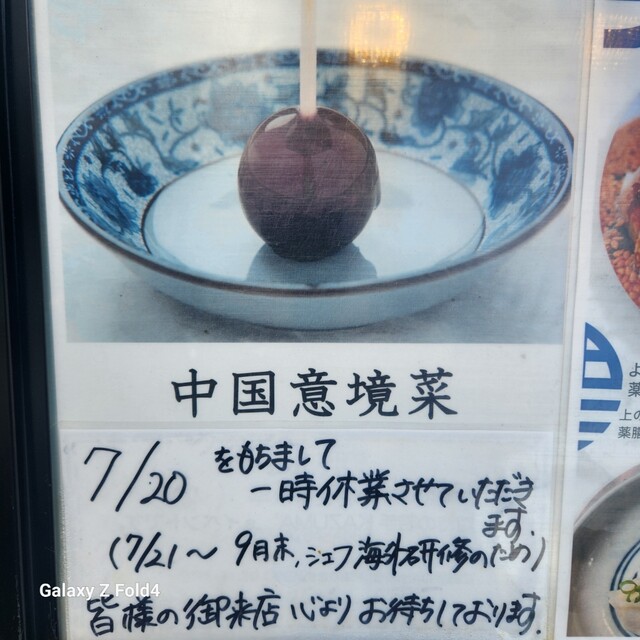 中国意境菜
7/20 をもちまして
一時休業させていただき
ます。
(7/21～9月末、シェフ海外研修のため)
皆様の御来店心よりお待ちしております。
Galaxy Z Fold4
よ
薬
上の
薬膳